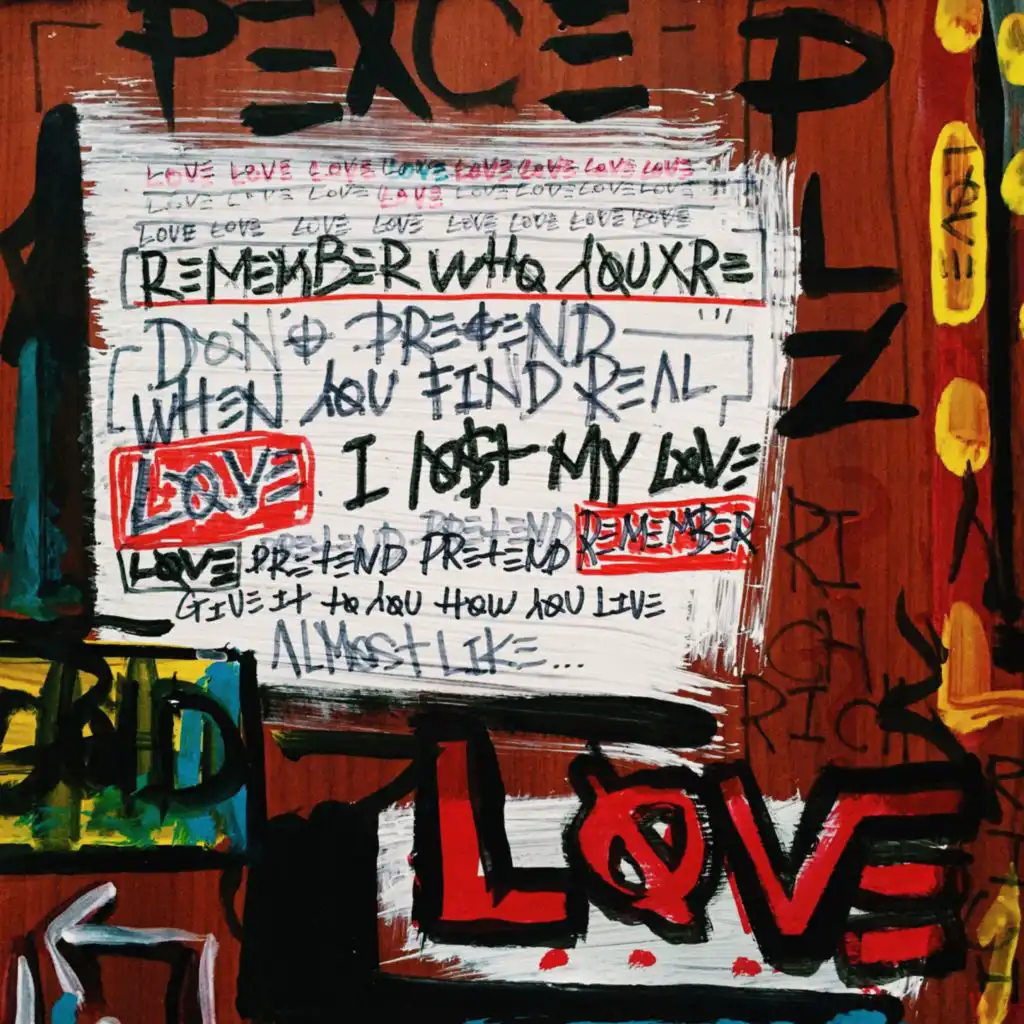 PEXCE
PLZ
LOVE LOVE LOVE LOVE LOVE LOVE LOVE LOVE
LOVE LOVE LOVE LOVE LOVE LOVE LOVE LOVE
LOVE LOVE LOVE LOVE LOVE LOVE LOVE LOVE
REMEMBER WHO YOUXRE
DON'T PRETEND
WHEN YOU FIND REAL
LOVE I LO$T MY LOVE
PRETEND PRETEND REMEMBER
LOVE PRETEND PRETEND
GIVE IT TO YOU HOW YOU LIVE
ALMOST LIKE...
LOVE
RI
CH
RICH
LOVE